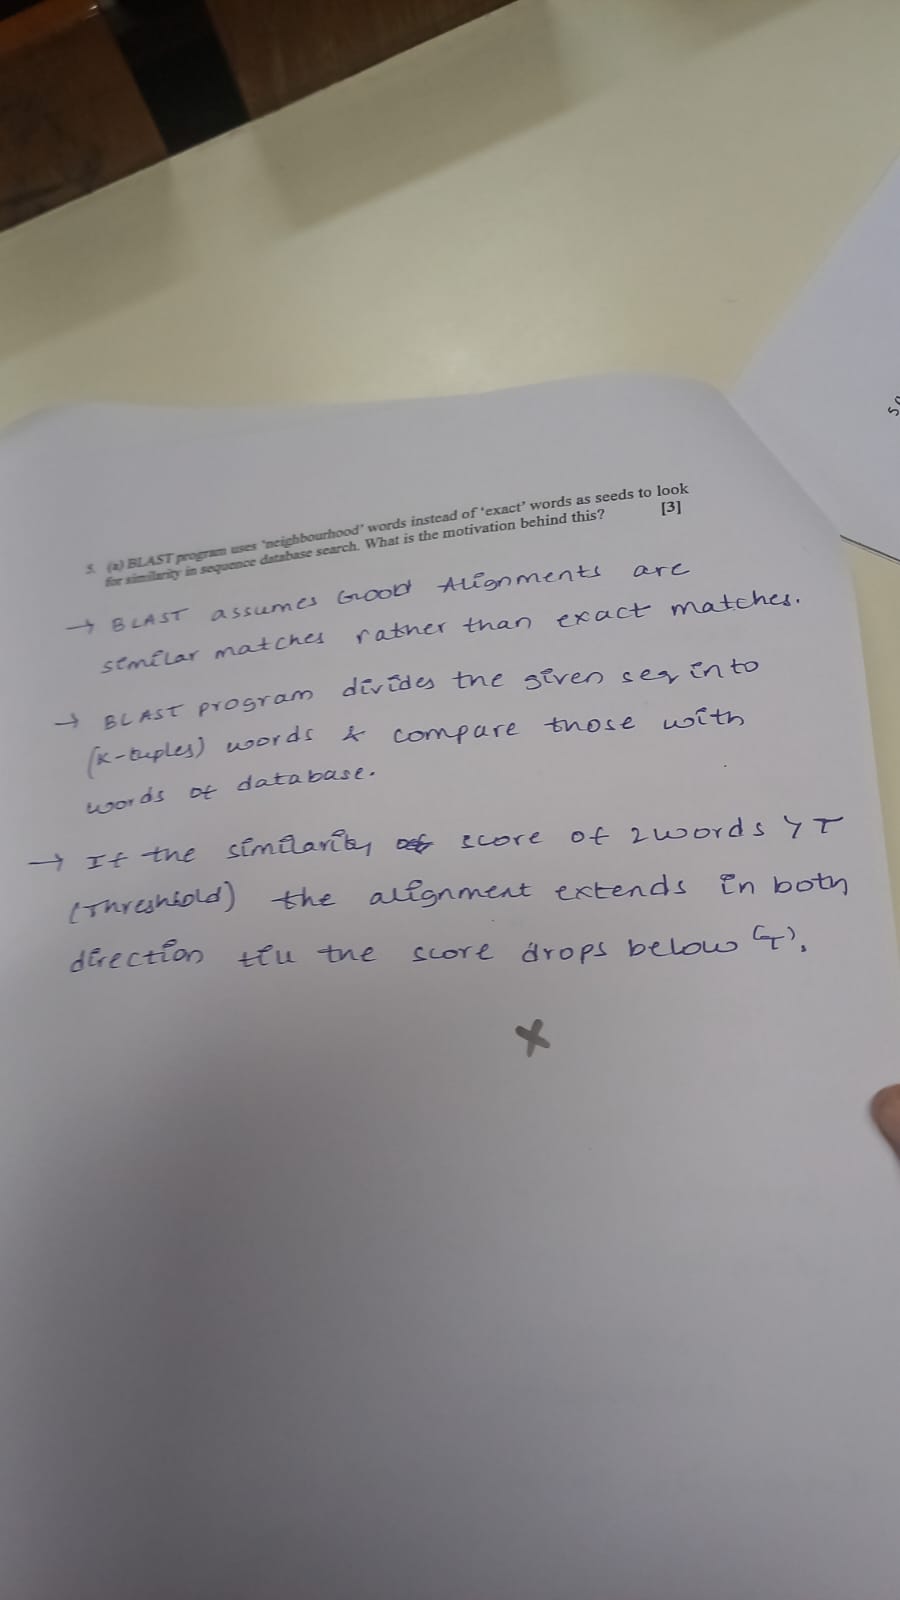 5. (a) BLAST program uses 'neighbourhood' words instead of 'exact' words as seeds to look
for similarity in sequence database search. What is the motivation behind this? [3]
→ BLAST assumes Good Alignments are
similar matches rather than exact matches.
→ BLAST program divides the given seq into
(K-tuples) words & compare those with
words of database.
→ If the similarity score of 2 words > T
(Threshold) the alignment extends in both
direction till the score drops below (T).
X